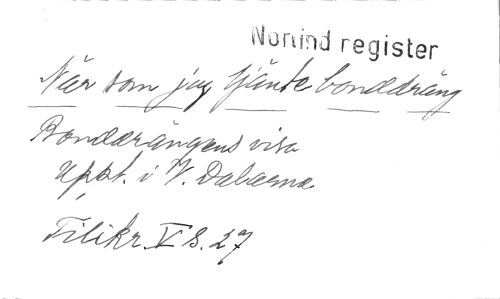 Norlind register
När som jag tjänte bonddräng
Bonddrängens visa
Uppt. i V. Dalarna
Filikr. V s. 27